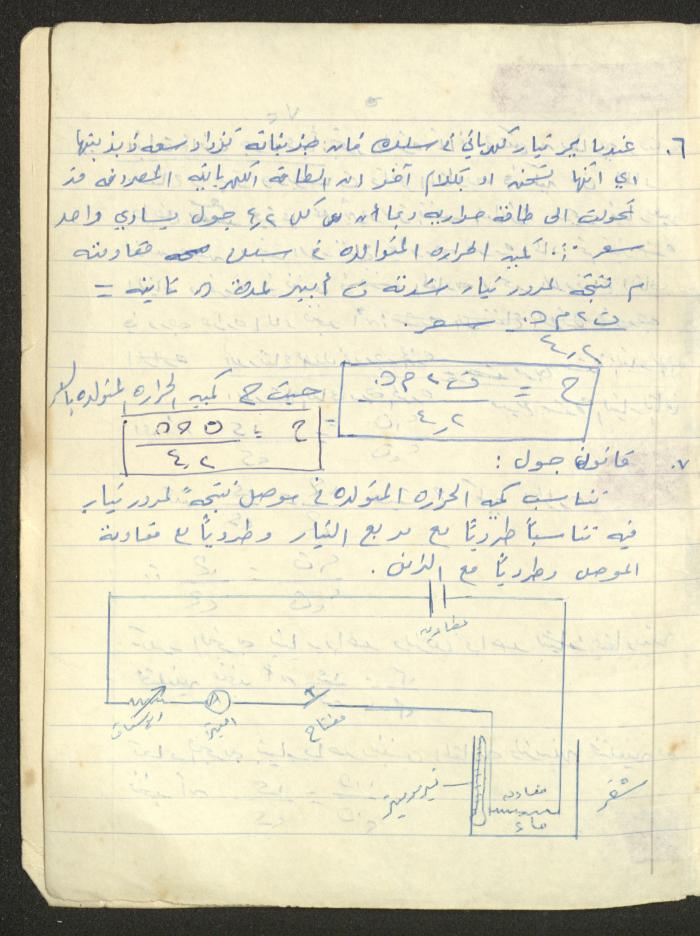 ٦. عندما يمر تيار كهربائي في سلك فان جزيئاته تزداد سعة ذبذبتها
اي انها تسخن او بكلام آخر ان الطاقة الكهربائية المصروفة قد
تحولت الى طاقة حرارية وبما أن كل ٤,٢ جول يساوي واحد
سعر ∴ كمية الحرارة المتوالدة في سلك مقاومته
م نتيجة لمرور تيار شدته ت أمبير لمدة ن ثانية =
ت٢ م ن سعر.
٤,٢
ح = ت٢ م ن
٤,٢
حيث ح كمية الحرارة المتولدة بالسعر
ح =
٤,٢
٧. قانون جول :
تتناسب كمية الحرارة المتولدة في موصل نتيجةً لمرور تيار
فيه تناسباً طردياً مع مربع التيار وطردياً مع مقاومة
الموصل وطردياً مع الزمن .
بطارية
مفتاح
اميتر
ثيرمومتر
مقاومة
ماء